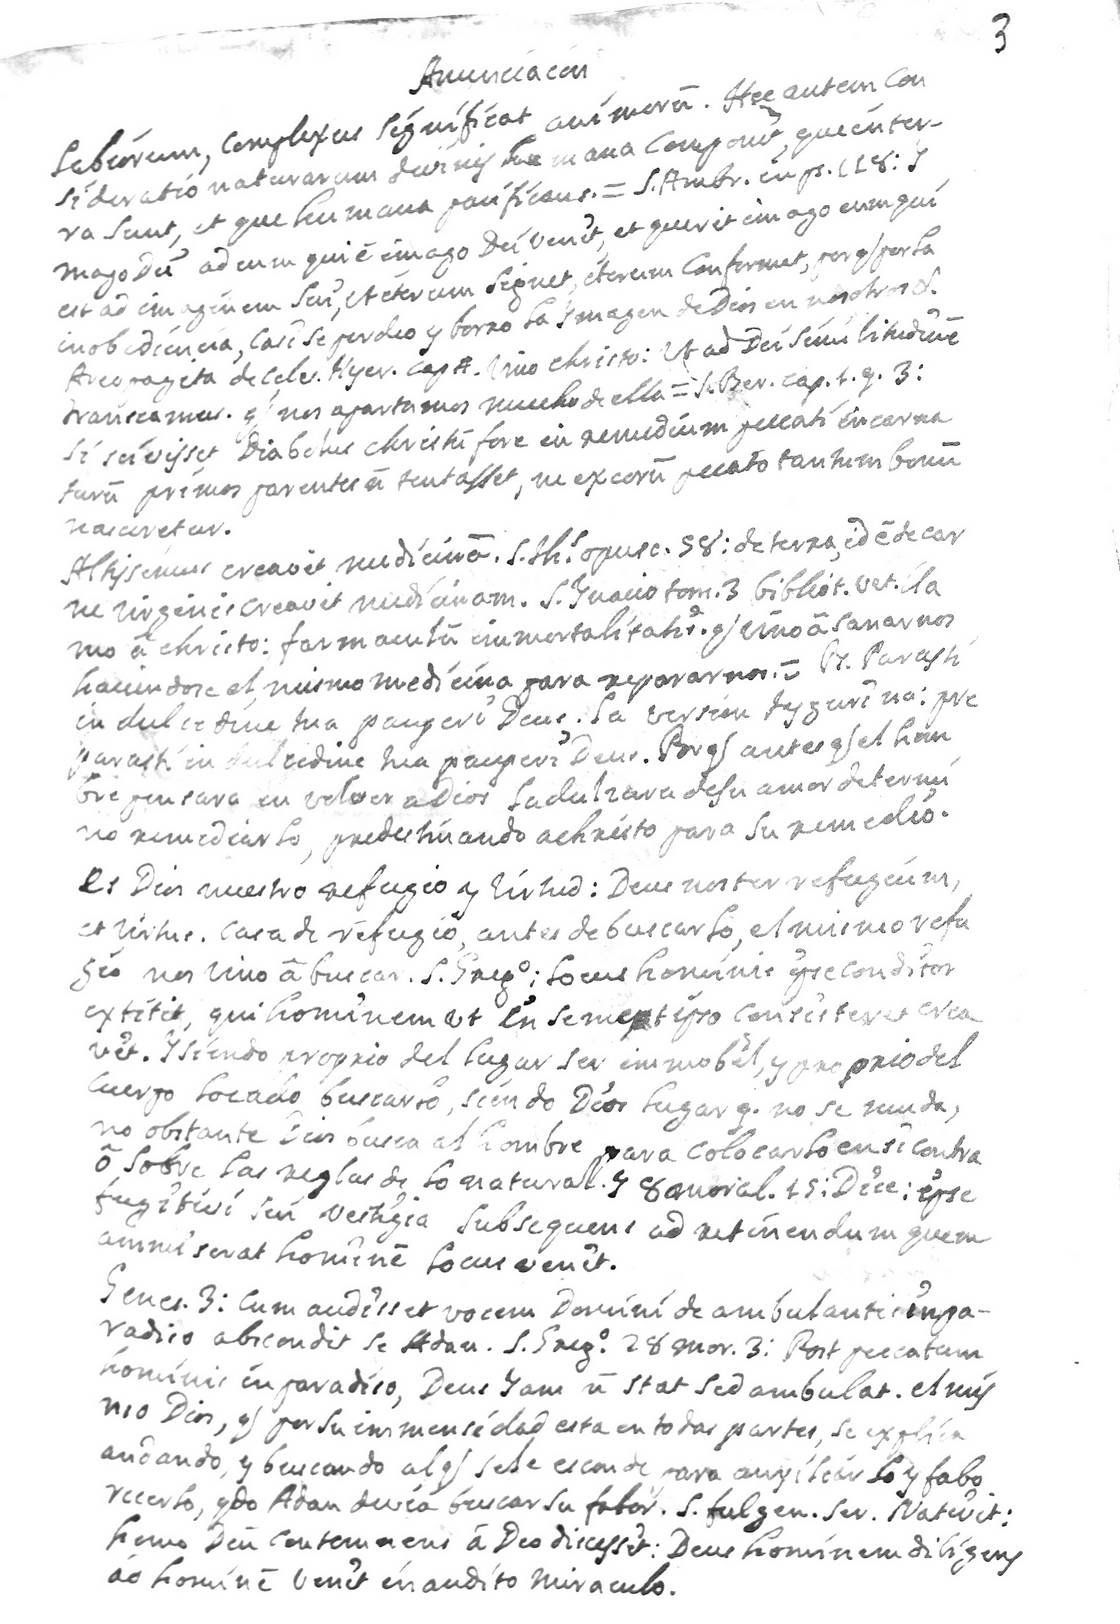 3
Anunciacion
Labiorum, complexus significat animorū. Hec autem con
sideratio naturarum divinis humana componit, que inter-
ra sunt, et que humana pacificans. = S. Ambr. in ps. 118: Y
mago Dei ad eum qui ē imago Dei venit, et querit imago eum qui
est ad imaginem sui, ut iterum signet, iterum confirmet, porq̄ por la
inobediencia, casi se perdio y borro la Ymagen de Dios en nosotros
Areopagita de Cele. Hyer. cap. vino christo: Ut ad Dei similitudinē
transeamus. q̄ nos apartamos mucho de ella = S. Ber. cap. 1. q. 3:
si scivisset Diabolus christū fore in remedium peccati incarna
turū primos parentes ñ tentasset, ne ex eorū pecato tantum bonū
nasceretur.
Altissimus creavit medicinā. S. Th.ˢ opusc. 58: de terra, id ē de car
ne virginis creavit medicinam. S. Ynacio tom. 3 bibliot. vet. lla
mo â christo: farmacutū immortalitatis. q̄ vino â sanarnos
haciendose el mismo medicina para repararnos. = Ps. Parasti
in dulcedine tua pauperi Deus. La version tygurina: pre
parasti in dulcedine tua pauperi Deus. Porq̄ antes q̄ el hom
bre pensara en volver a Dios la dulzura de su amor determi
no remediarlo, predestinando a christo para su remedio.
Es Dios nuestro refugio y virtud: Deus noster refugium,
et virtus. Casa de refugio, antes de buscarlo, el mismo refu
gio nos vino â buscar. S. Greg.º: Locus hominis ipse conditor
extitit, qui hominem ut in semeptipso consisteret crea
vit. Y siendo proprio del lugar ser immobil, y proprio del
cuerpo locado buscarlo, siendo Dios lugar q. no se muda,
no obstante Dios busca al hombre para colocarlo en si contra
ô sobre las reglas de lo natural. Y 8 moral. 15: Dice: ipse
fugitivi sui vestigia subsequens ad retinendum quem
ammiserat hominē locus venit.
Genes. 3: Cum audisset vocem Domini deambulantis in pa-
radiso abscondit se Adan. S. Greg.º 28 mor. 3: Post peccatum
hominis in paradiso, Deus Yam ñ stat sed ambulat. el mis
mo Dios, q̄ por su immensidad esta en todas partes, se explica
andando, y buscando al q̄ se le esconde para auxiliarlo y fabo
recerlo, qdo Adan devia buscar su fabor. S. fulgen. ser. Nativit:
homo Deū contemnens â Deo discessit: Deus hominem diligens
ad hominē venit inaudito miraculo.